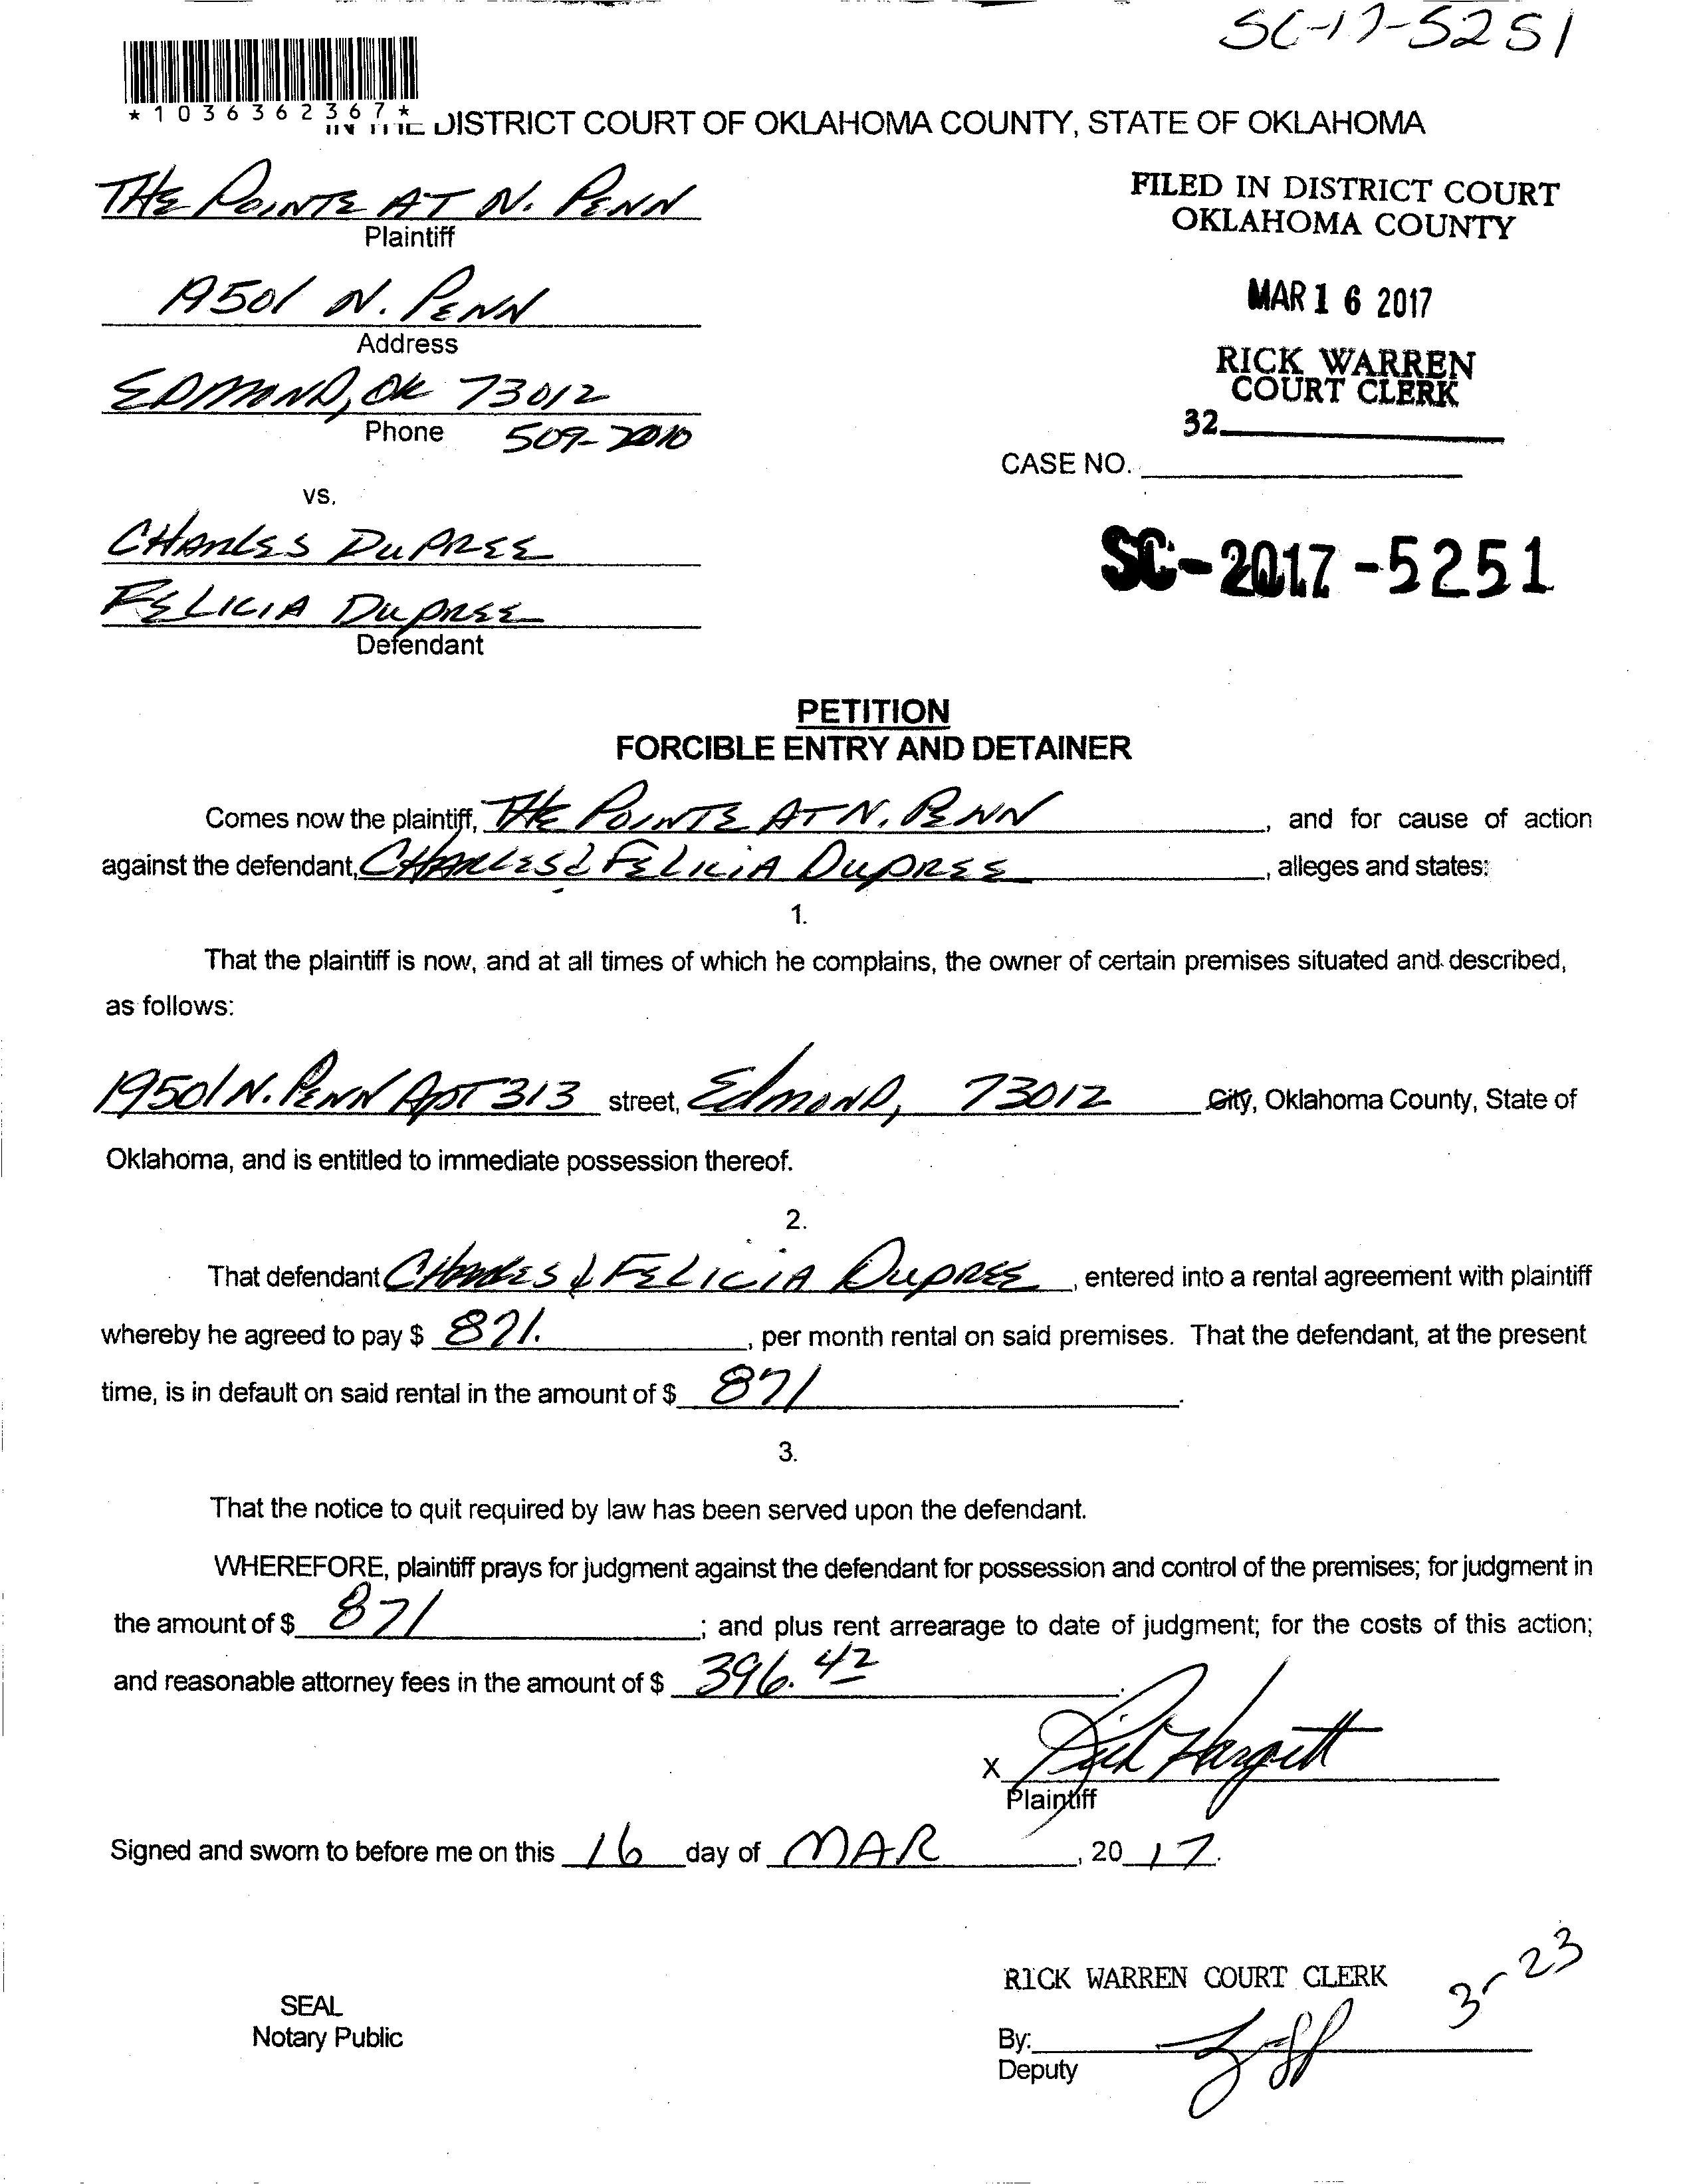 SC-17-5251
*1036362367*
IN THE DISTRICT COURT OF OKLAHOMA COUNTY, STATE OF OKLAHOMA
THE POINTE AT N. PENN
Plaintiff
FILED IN DISTRICT COURT
OKLAHOMA COUNTY
19501 N. PENN
Address
MAR 16 2017
EDMOND, OK 73012
Phone 509-2010
RICK WARREN
COURT CLERK
32
CASE NO.
vs.
CHARLES DUPREE
FELICIA DUPREE
Defendant
SC-2017-5251
PETITION
FORCIBLE ENTRY AND DETAINER
Comes now the plaintiff, THE POINTE AT N. PENN, and for cause of action
against the defendant, CHARLES & FELICIA DUPREE, alleges and states:
1.
That the plaintiff is now, and at all times of which he complains, the owner of certain premises situated and described,
as follows:
19501 N. PENN APT 313 street, EdmOND, 73012 City, Oklahoma County, State of
Oklahoma, and is entitled to immediate possession thereof.
2.
That defendant CHARLES & FELICIA DUPREE, entered into a rental agreement with plaintiff
whereby he agreed to pay $ 871., per month rental on said premises. That the defendant, at the present
time, is in default on said rental in the amount of $ 871.
3.
That the notice to quit required by law has been served upon the defendant.
WHEREFORE, plaintiff prays for judgment against the defendant for possession and control of the premises; for judgment in
the amount of $ 871; and plus rent arrearage to date of judgment; for the costs of this action;
and reasonable attorney fees in the amount of $ 396.42.
X Rick Hargett
Plaintiff
Signed and sworn to before me on this 16 day of MAR, 20 17.
RICK WARREN COURT CLERK
3-23
SEAL
Notary Public
By:
Deputy